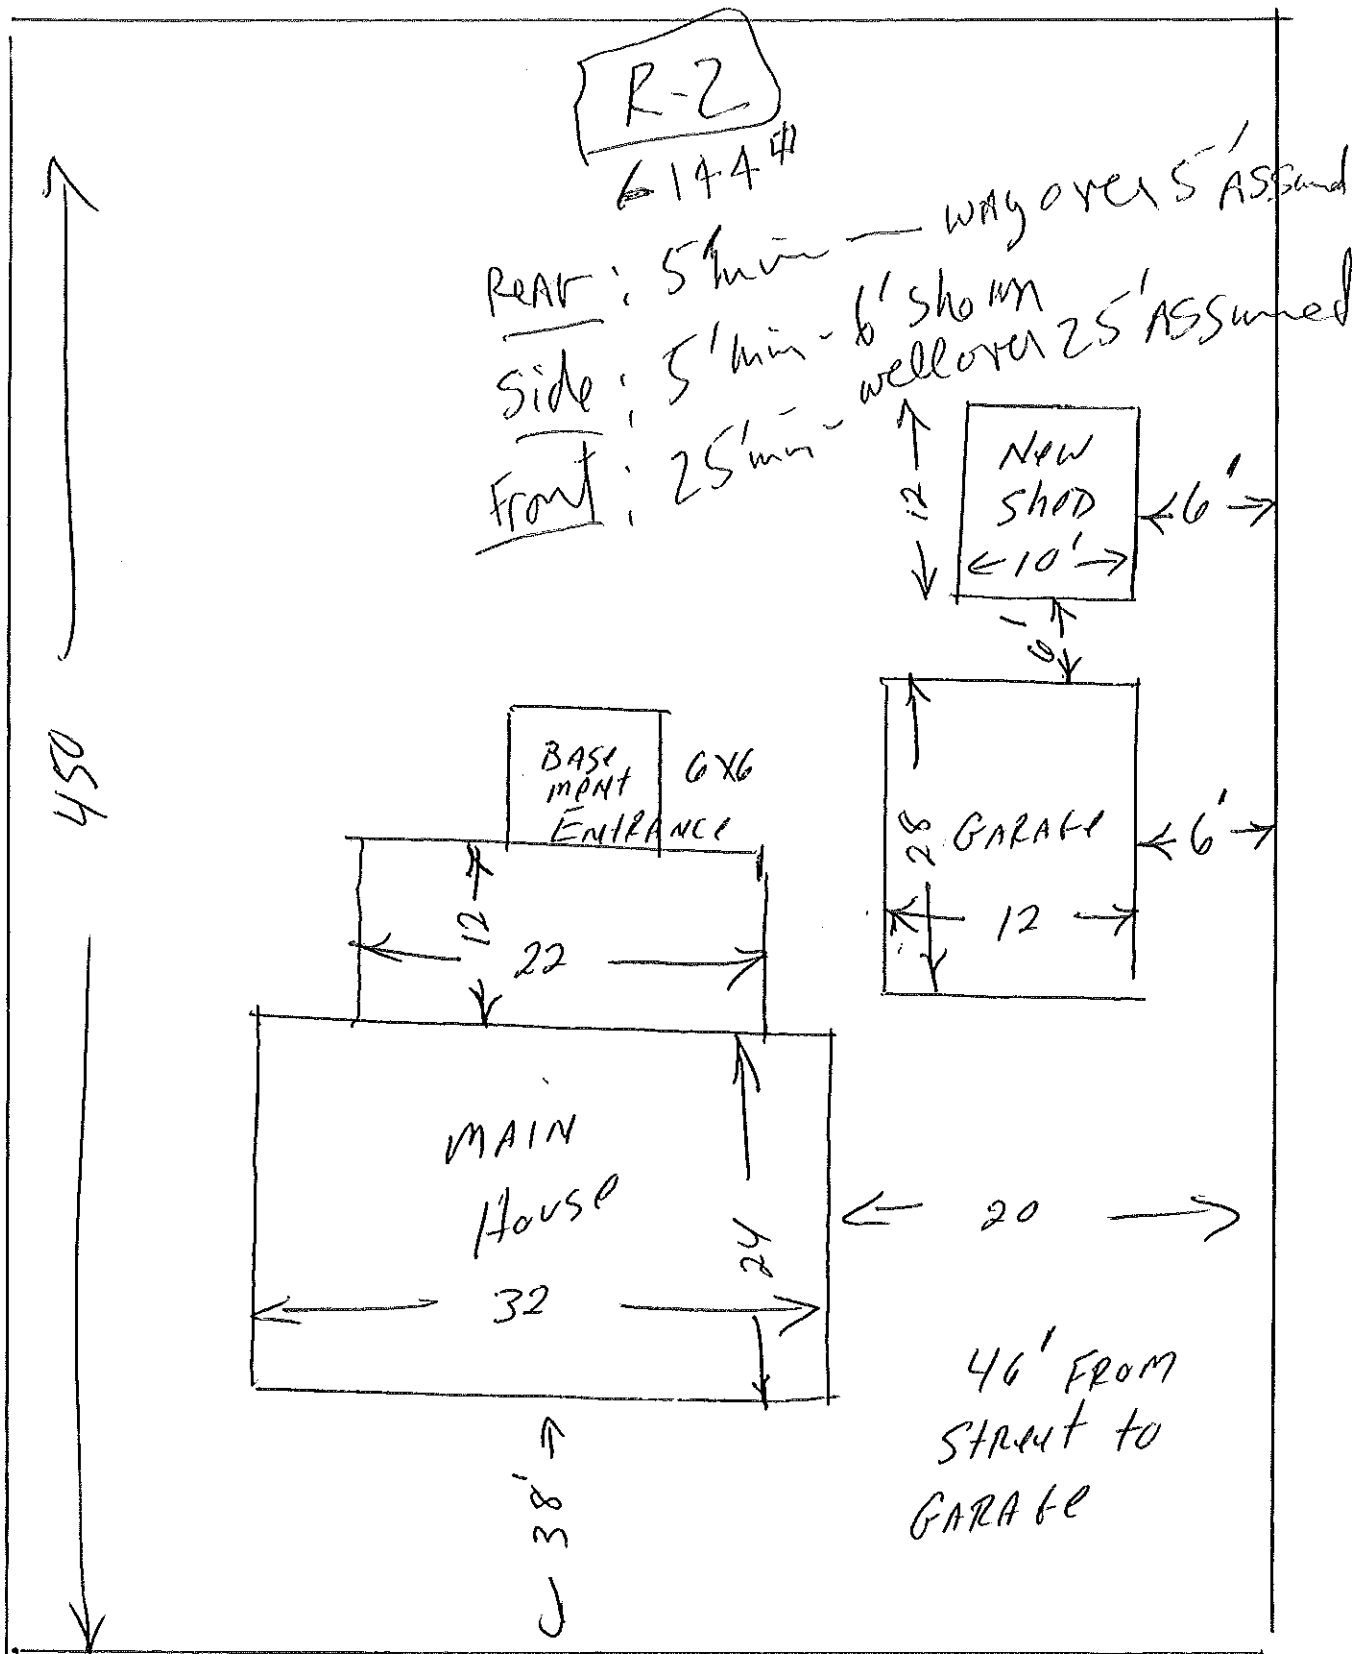 R-2
6144#
Rear: 5' min — way over 5' Assumed
Side: 5' min - 6' shown
Front: 25' min - well over 25' Assumed
12
New
Shed
10'
6'
6'
450
Base
ment
Entrance
6x6
28
Garage
6'
12
12
22
Main
House
24
20
32
46' From
Street to
Garage
38'